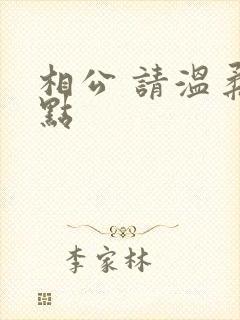 相公 請溫柔
點
李家林